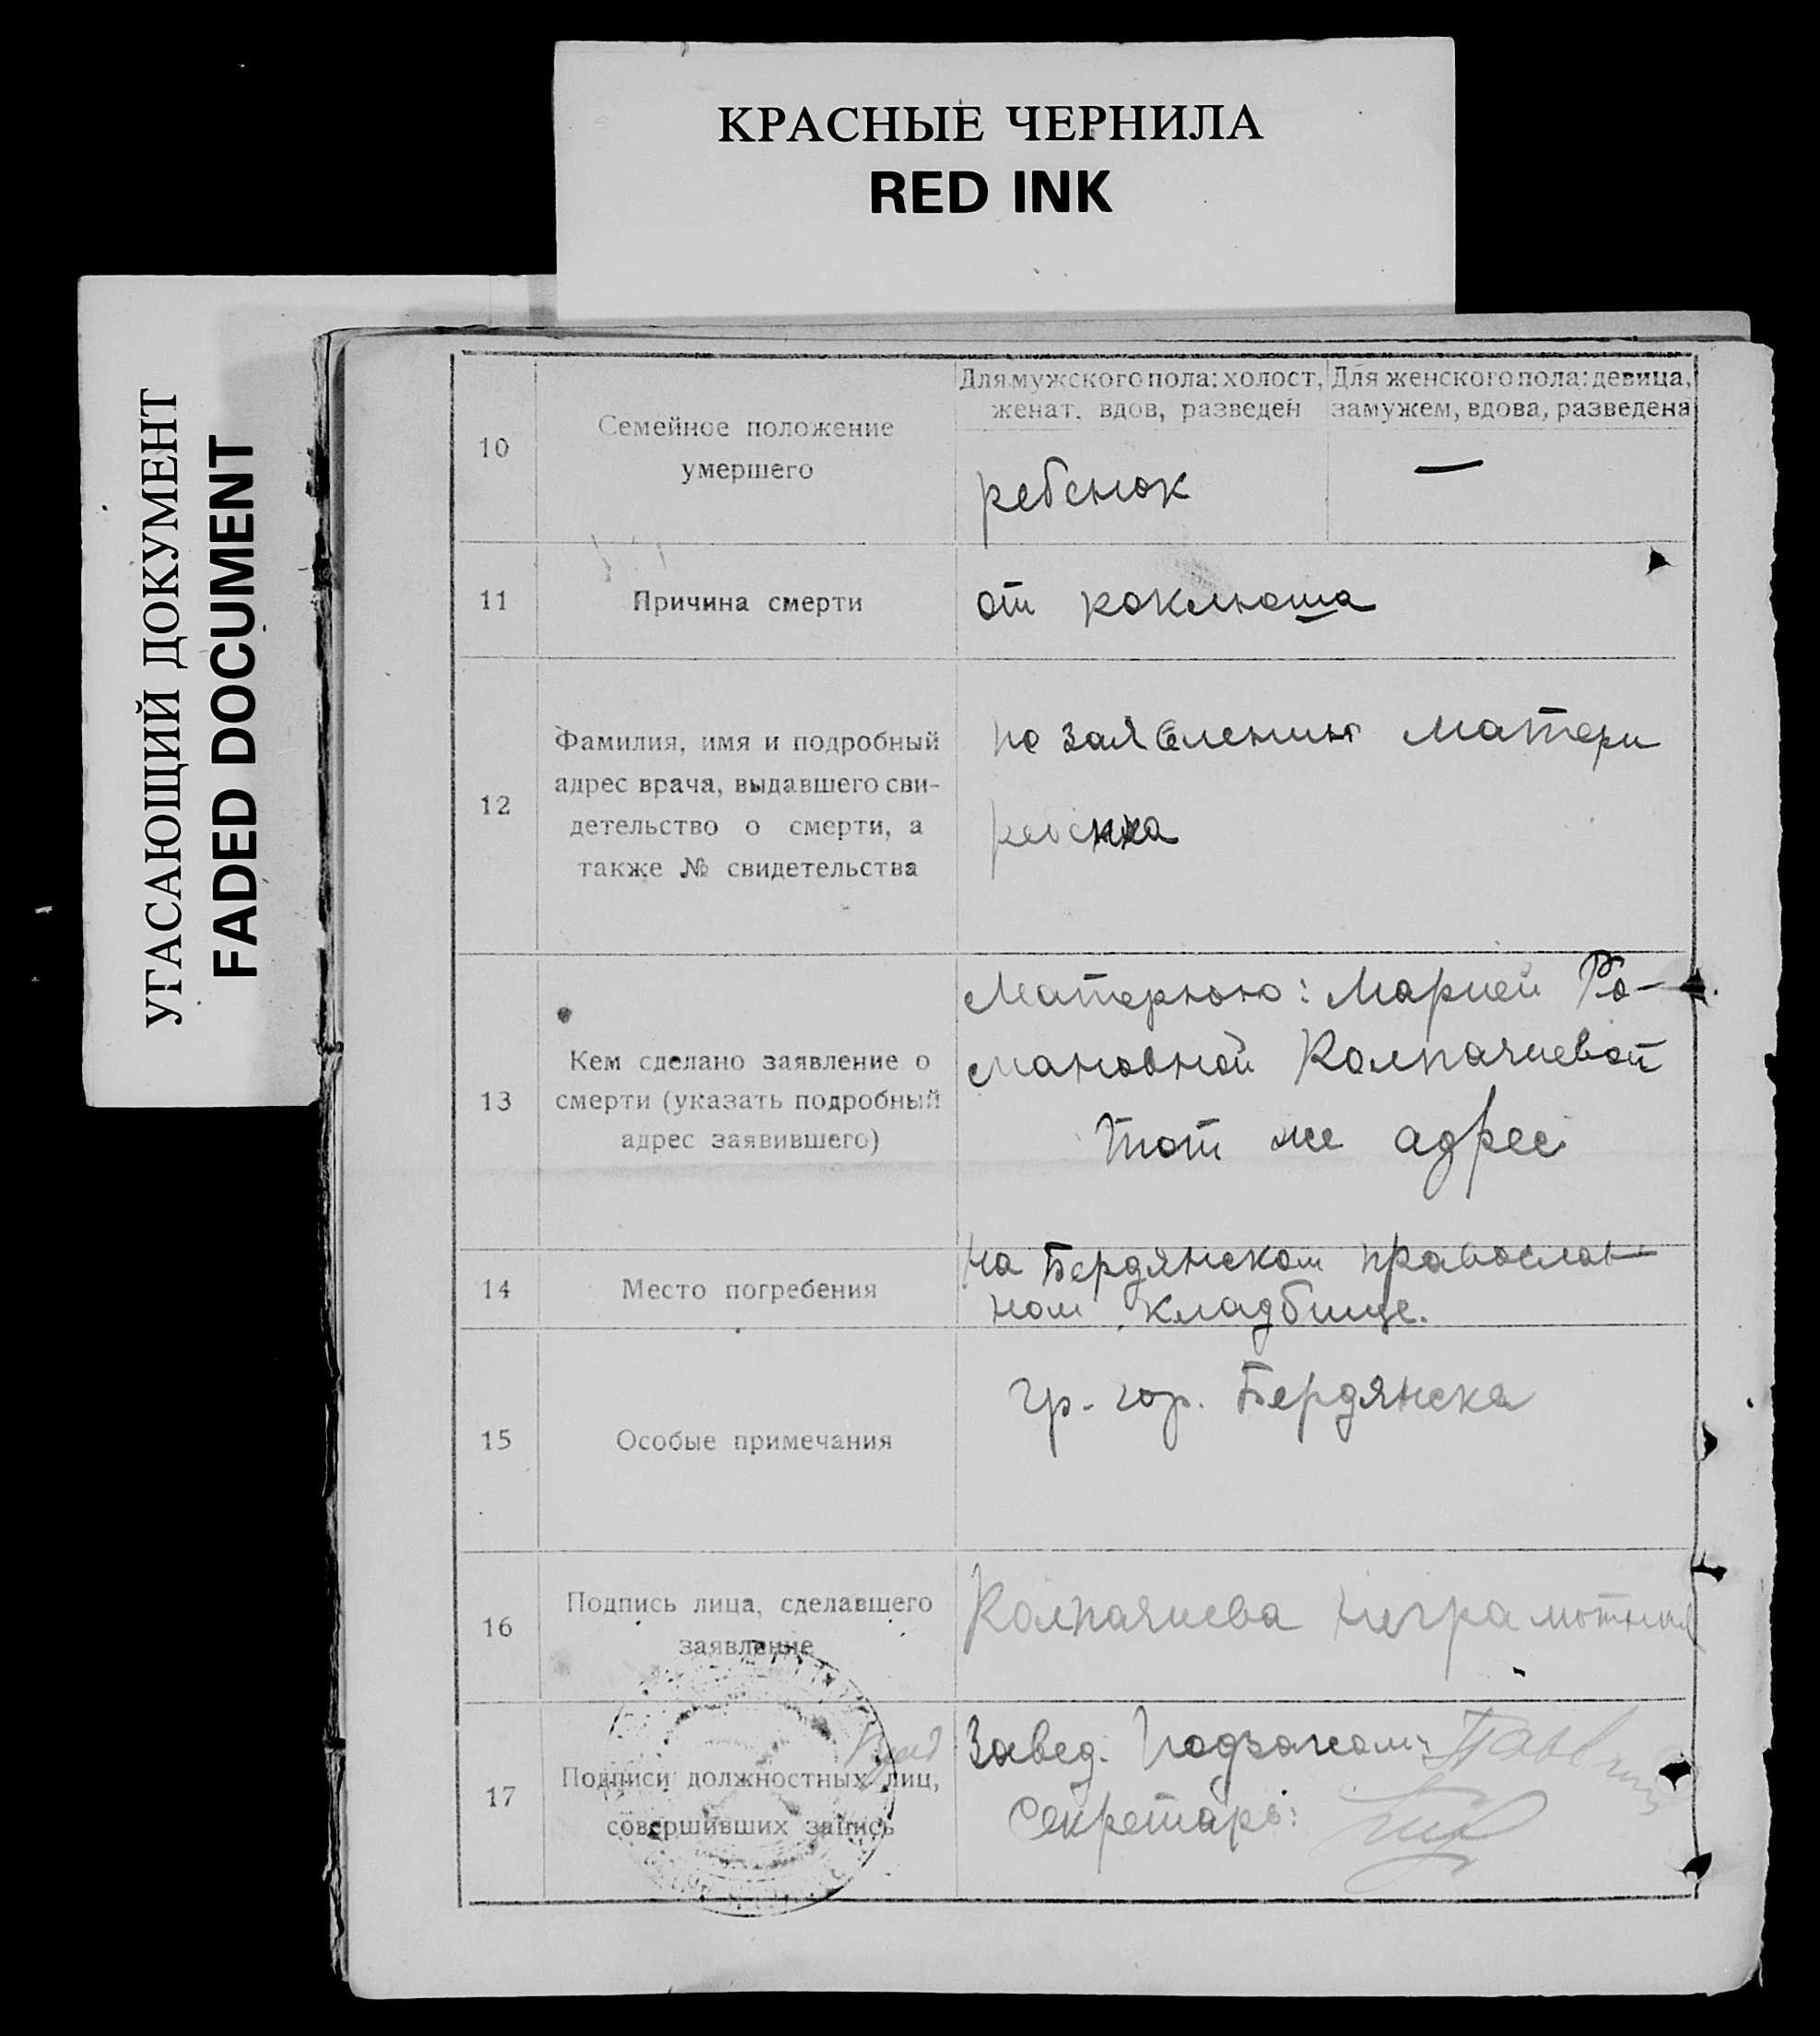 КРАСНЫЕ ЧЕРНИЛА
RED INK
УГАСАЮЩИЙ ДОКУМЕНТ
FADED DOCUMENT
10
Семейное положение
умершего
Для мужского пола: холост,
женат, вдов, разведен
Для женского пола: девица,
замужем, вдова, разведена
ребенок
—
11
Причина смерти
от коклюша
12
Фамилия, имя и подробный
адрес врача, выдавшего сви-
детельство о смерти, а
также № свидетельства
по заявлению матери
ребенка
13
Кем сделано заявление о
смерти (указать подробный
адрес заявившего)
Матерюю: Марией Ро-
мановной Колпачиевой
тот же адрес
14
Место погребения
на Бердянском православ-
ном кладбище.
15
Особые примечания
гр. гор. Бердянска
16
Подпись лица, сделавшего
заявление
Колпачиева неграмотная
17
Подписи должностных лиц,
совершивших запись
Завед.
Секретарь: